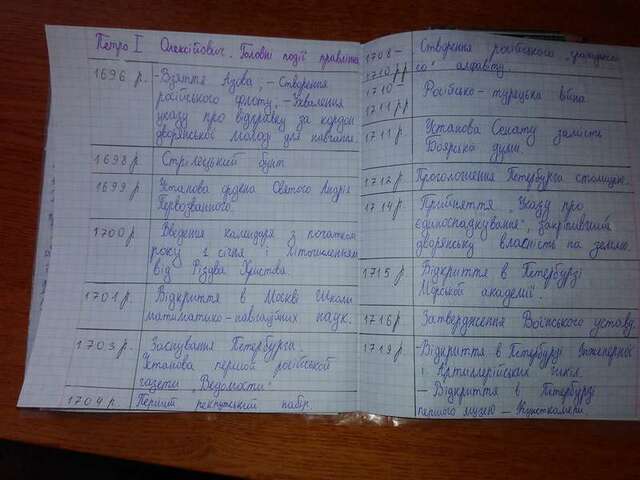 Петро І Олексійович. Головні події правління
1696 р. - Взяття Азова; - Створення
російського флоту; - Ухвалення
указу про відправку за кордон
дворянської молоді для навчання.
1698 р. Стрілецький бунт
1699 р. Установа ордена Святого Андрія
Первозванного.
1700 р. Введення календаря з початком
року 1 січня і літочисленням
від Різдва Христва
1701 р. Відкриття в Москві Школи
математико-навігаційних наук.
1703 р. Заснування Петербурга.
Установа першої російської
газети "Ведомости"
1704 р. Перший рекрутський набір
1708 - Створення російського громадянсь
1710 рр го алфавіту.
1710 - Російсько-турецька війна
1711 рр
1711 р. Установа Сенату замість
Боярської думи.
1712 р. Проголошення Петербурга столицею.
1714 р. Прийняття "Указу про
єдиноспадкування", закріпивший
дворянську власність на землю.
1715 р Відкриття в Петербурзі
Морської академії.
1716 р. Затвердження Воїнського уставу
1719 р. - Відкриття в Петербурзі Інженерної
і Артиллерійських шкіл
- Відкриття в Петербурзі
першого музею - Кунсткамери